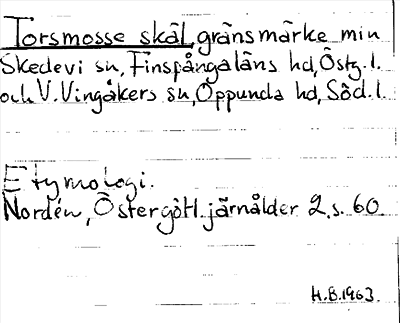 Torsmosse skäl, gränsmärke min
Skedevi sn, Finspångaläns hd, Östg. l.
och V. Vingåkers sn, Oppunda hd, Söd. l.
Etymologi.
Nordén, Östergötl. järnålder 2, s. 60
H.B. 1963.